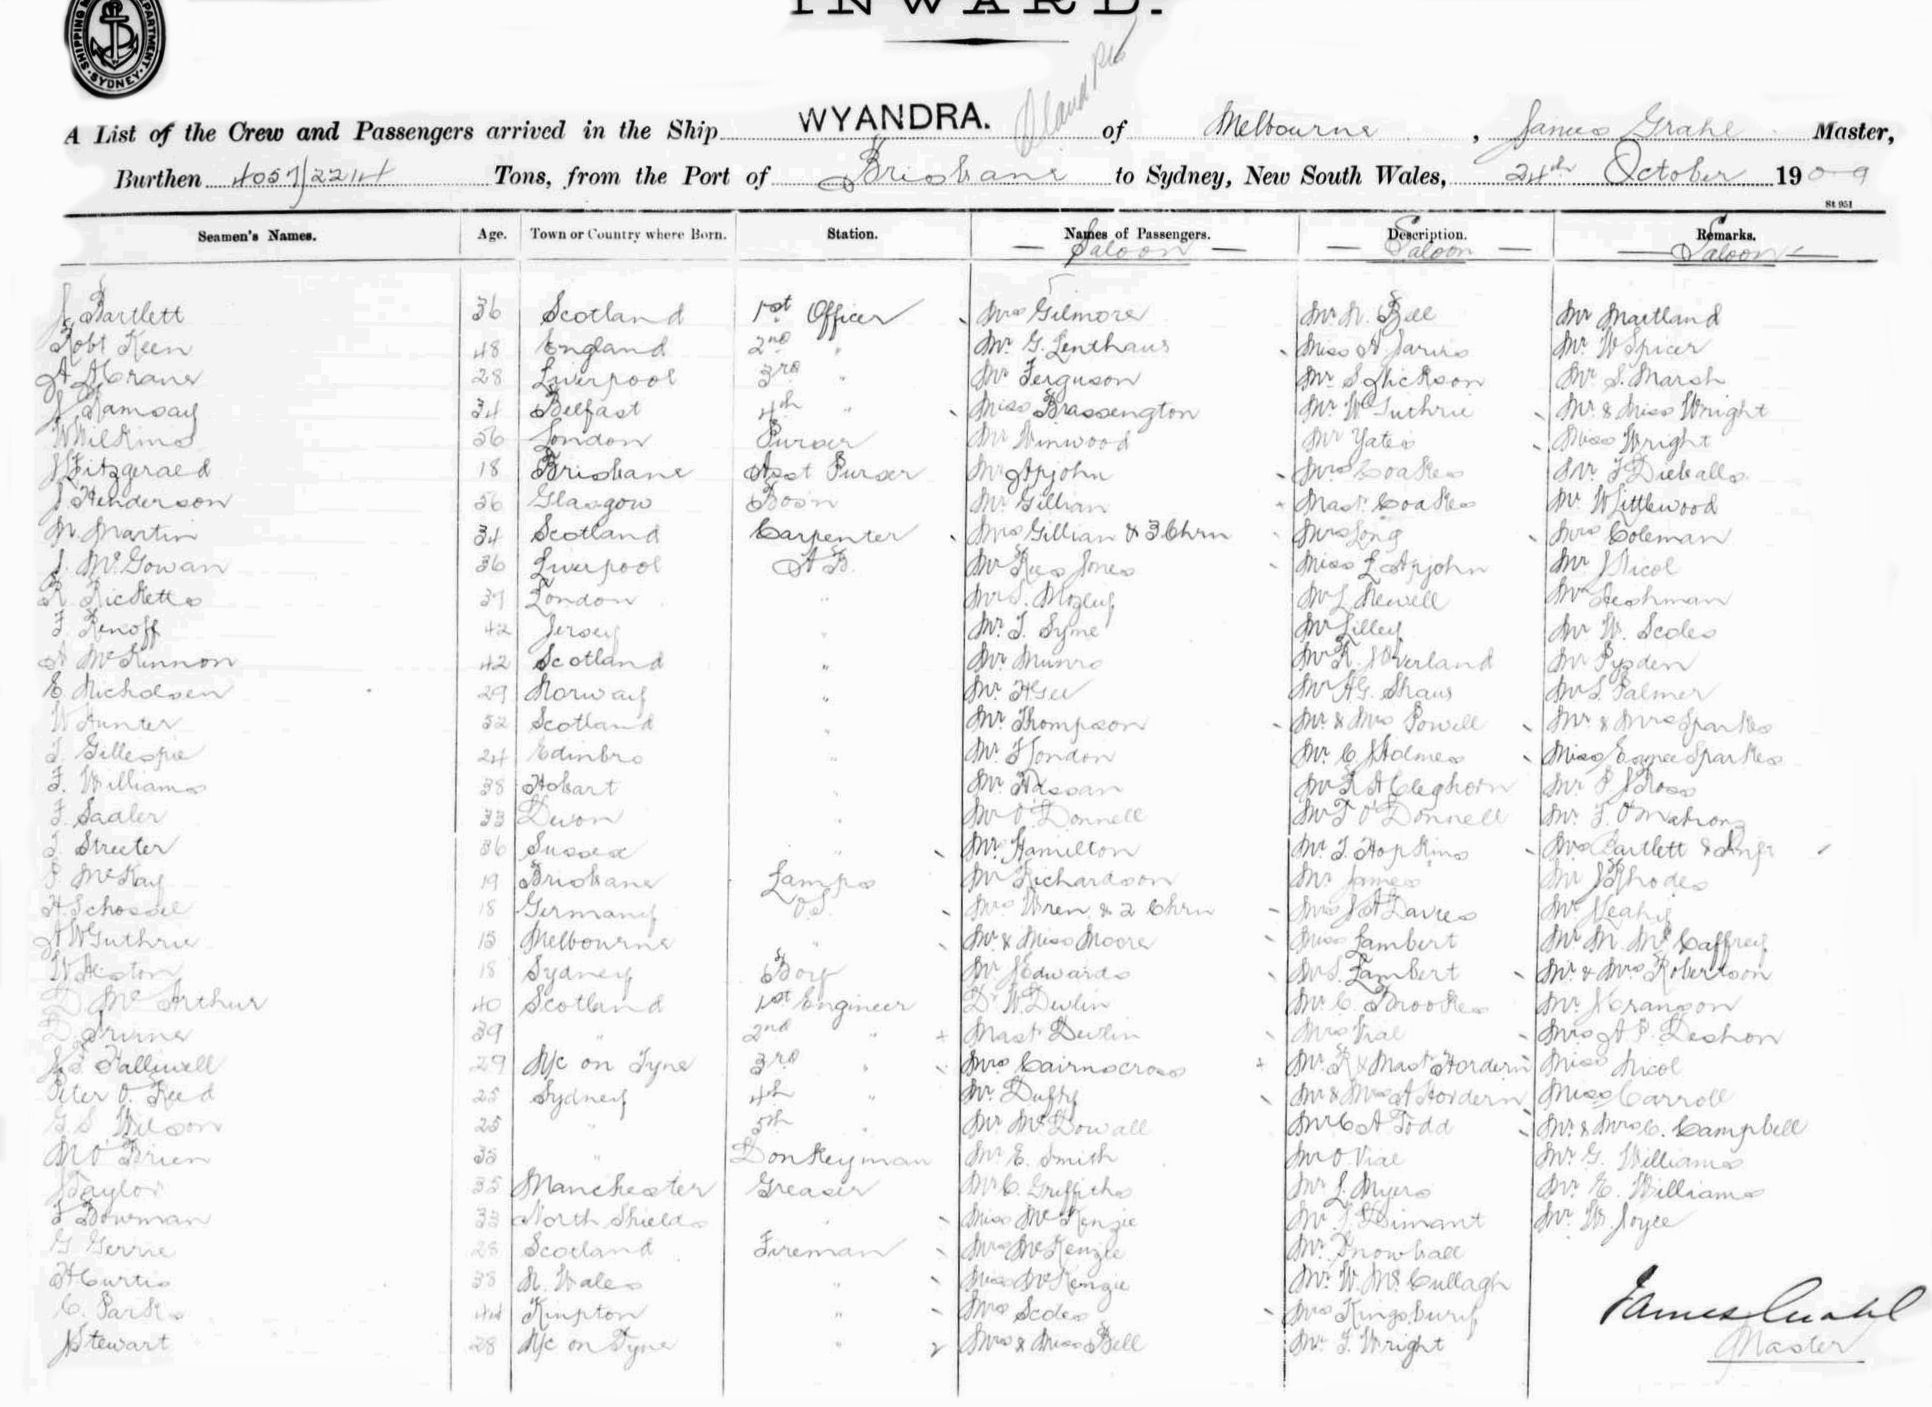 INWARD.
SHIPPING DEPARTMENT SYDNEY
A List of the Crew and Passengers arrived in the Ship WYANDRA. of Melbourne, James Grahl Master,
Burthen 4057/2214 Tons, from the Port of Brisbane to Sydney, New South Wales, 24th October 1909
St 951
Seamen's Names. Age. Town or Country where Born. Station. Names of Passengers. Description. Remarks.
Saloon Saloon Saloon
J Bartlett 36 Scotland 1st Officer Mrs Gilmore Mr. N. Bell Mr Maitland
Robt Keen 48 England 2nd " Mr. G. Lenthaus Miss A Jarvis Mr. W Spicer
A Crane 28 Liverpool 3rd " Mr Ferguson Mr S Dickson Mr. S. Marsh
J Ramsay 34 Belfast 4th " Miss Brassengton Mr W Guthrie Mr & Miss Wright
W Wilkins 56 London Purser Mr Winwood Mr Yates Miss Wright
J Fitzgerald 18 Brisbane Asst Purser Mr Apjohn Mrs Coakes Mr F Dieballs
J Henderson 56 Glasgow Bosn Mr Gillian Mast. Coakes Mr. W Littlewood
N. Martin 34 Scotland Carpenter Mrs Gillian & 3 Chrn Mrs Long Mrs Coleman
J. McGowan 36 Liverpool A B. Mr Rees Jones Miss L Apjohn Mr J Nicol
R Ricketts 37 London " Mr S. Mozley Mr L Newell Mr Heshman
F. Renoff 42 Jersey " Mr. T. Syme Mr Lilley Mr W. Scoles
A McKinnon 42 Scotland " Mr Munro Mr R. Overland Mr Pyzden
E. Nicholsen 29 Norway " Mr H Gee Mr H G. Shaw Mr S Palmer
W Hunter 52 Scotland " Mr. Thompson Mr & Mrs Powell Mr & Mrs Sparkes
T. Gillespie 24 Edinbro " Mr. F London Mr. C J Holmes Miss Sparkes
F. Williams 38 Hobart " Mr. Hassan Mr R A Cleghorn Mr P J Ross
F. Sadler 33 Devon " Mr O'Donnell Mr T O'Donnell Mr. T. O'Mahony
T. Streeter 36 Sussex " Mr. Hamilton Mr. T. Hopkins Mrs Bartlett & Inft
P. McKay 19 Brisbane Lamps Mr Richardson Mr James Mr J Rhodes
H. Schossel 18 Germany O.S. Mrs Wren & 2 Chrn Mrs J A Davies Mr Leahy
A W Guthrie 15 Melbourne " Mr & Miss Moore Miss Lambert Mr M. McCaffrey
W Heston 18 Sydney Boy Mr J Edwards Mr S. Lambert Mr & Mrs Robertson
D McArthur 40 Scotland 1st Engineer Dr W. Devlin Mr. C. Brookes Mr. J Cranson
D Irvine 39 " 2nd " Mast Devlin Mrs Vial Mrs A P. Deshon
J F Halliwell 29 N/c on Tyne 3rd " Mrs Cairncross Mr. R & Mast Hordern Miss Nicol
Peter O. Reed 25 Sydney 4th " Mr. Duffy Mr & Mrs A Hordern Miss Carroll
G S Wilson 25 " 5th " Mr McDowall Mr C A Todd Mr & Mrs C. Campbell
M O'Brien 35 " Donkeyman Mr. E. Smith Mr O Vial Mr. G. Williams
J Taylor 35 Manchester Greaser Mr C. Griffiths Mr L. Myers Mr. E. Williams
F Bowman 33 North Shields " Miss McKenzie Mr. F Dimant Mr. W. Joyce
G Gerrie 28 Scotland Fireman Mrs McKenzie Mr. Snowball
H Curtis 38 N. Wales " Miss McKenzie Mr. W. McCullagh
C. Parks 44 Kinpton " Mrs Scoles Mrs Kingsbury James Grahl
J Stewart 28 N/c on Tyne " Mrs & Miss Bell Mr. T. Wright Master